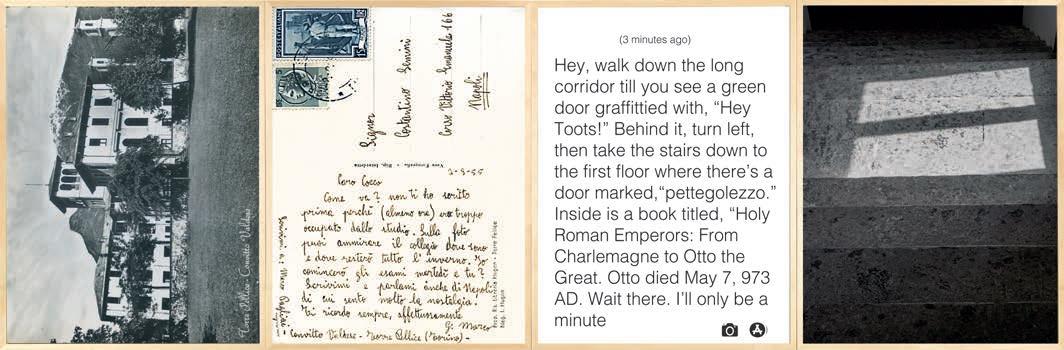 Torre Pellice - Convitto Valdese
POSTE ITALIANE
Signor
Costantino Gemini
Corso Vittorio Emanuele 166
Napoli
Vera Fotografia - Rip. Interdetta
2-9-55
Caro Cocco
Come va? non ti ho scritto
prima perchè (almeno ora) ero troppo
occupato dallo studio. Sulla foto
puoi ammirare il collegio dove sono
e dove resterò tutto l'inverno. Io
comincerò gli esami martedì e tu?
Scrivimi e parlami anche di Napoli
di cui sento molto la nostalgia!
Ti ricordo sempre, affettuosamente
Gi. Marco
Convitto Valdese - Torre Pellice (Torino) -
Scrivimi a: Marco
(3 minutes ago)
Hey, walk down the long
corridor till you see a green
door graffittied with, “Hey
Toots!” Behind it, turn left,
then take the stairs down to
the first floor where there’s a
door marked,“pettegolezzo.”
Inside is a book titled, “Holy
Roman Emperors: From
Charlemagne to Otto the
Great. Otto died May 7, 973
AD. Wait there. I’ll only be a
minute